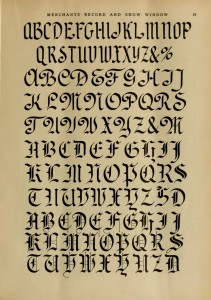 MERCHANTS RECORD AND SHOW WINDOW
ABCDEFGHIJKLMNOP
QRSTUVWXYZ&%
ABCDEFGHIJ
KLMNOPQRS
TUVWXYZ&
ABCDEFGHIJ
KLMNOPQRS
TUVWXYZ
ABCDEFGHIJ
KLMNOPQRS
TUVWXYZ